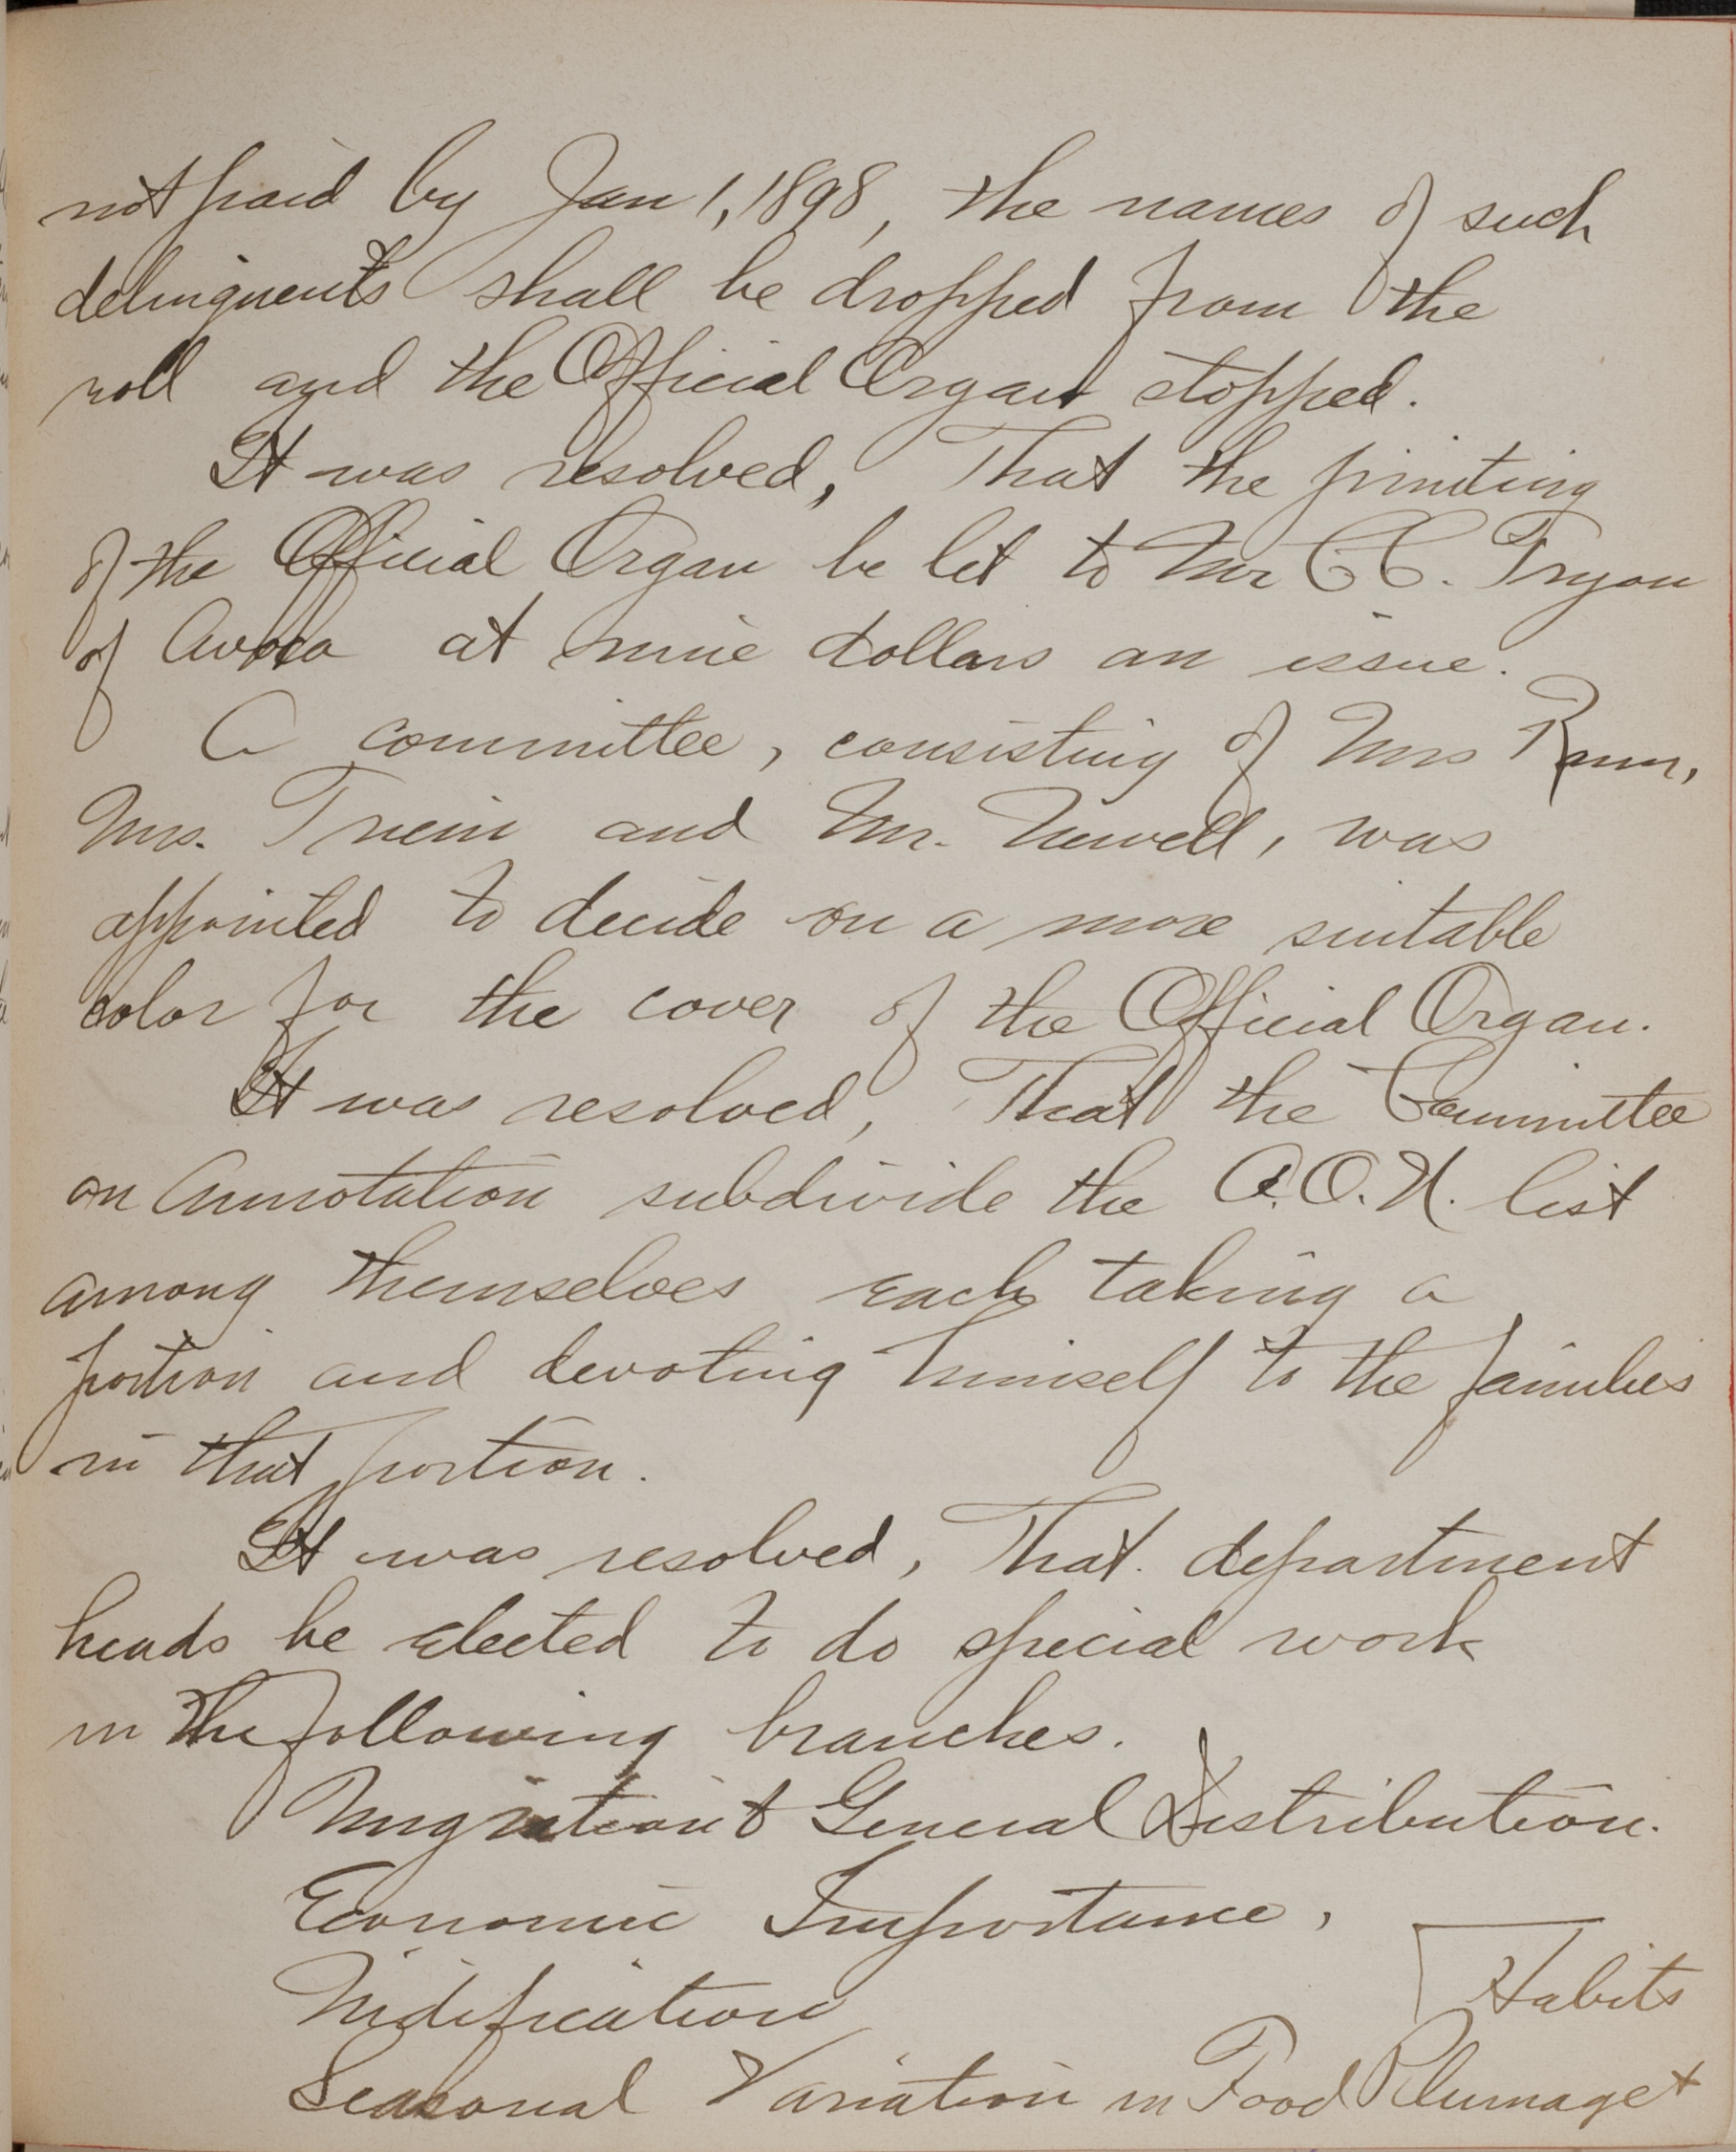 not paid by Jan 1, 1898, the names of such
delinquents shall be dropped from the
roll and the Official Organ stopped.
It was resolved, That the printing
of the Official Organ be let to Mr C C. Tryon
of Avoca at nine dollars an issue.
A committee, consisting of Mrs Rann,
Mrs. Trein and Mr. Newell, was
appointed to decide on a more suitable
color for the cover of the Official Organ.
It was resolved, That the Committee
on Annotation subdivide the A.O.U. list
among themselves each taking a
portion and devoting himself to the families
in that portion.
It was resolved, That department
heads be elected to do special work
in the following branches.
Migration & General Distribution.
Economic Importance,
Nidification
Habits
Seasonal Variation in Food Plumage &